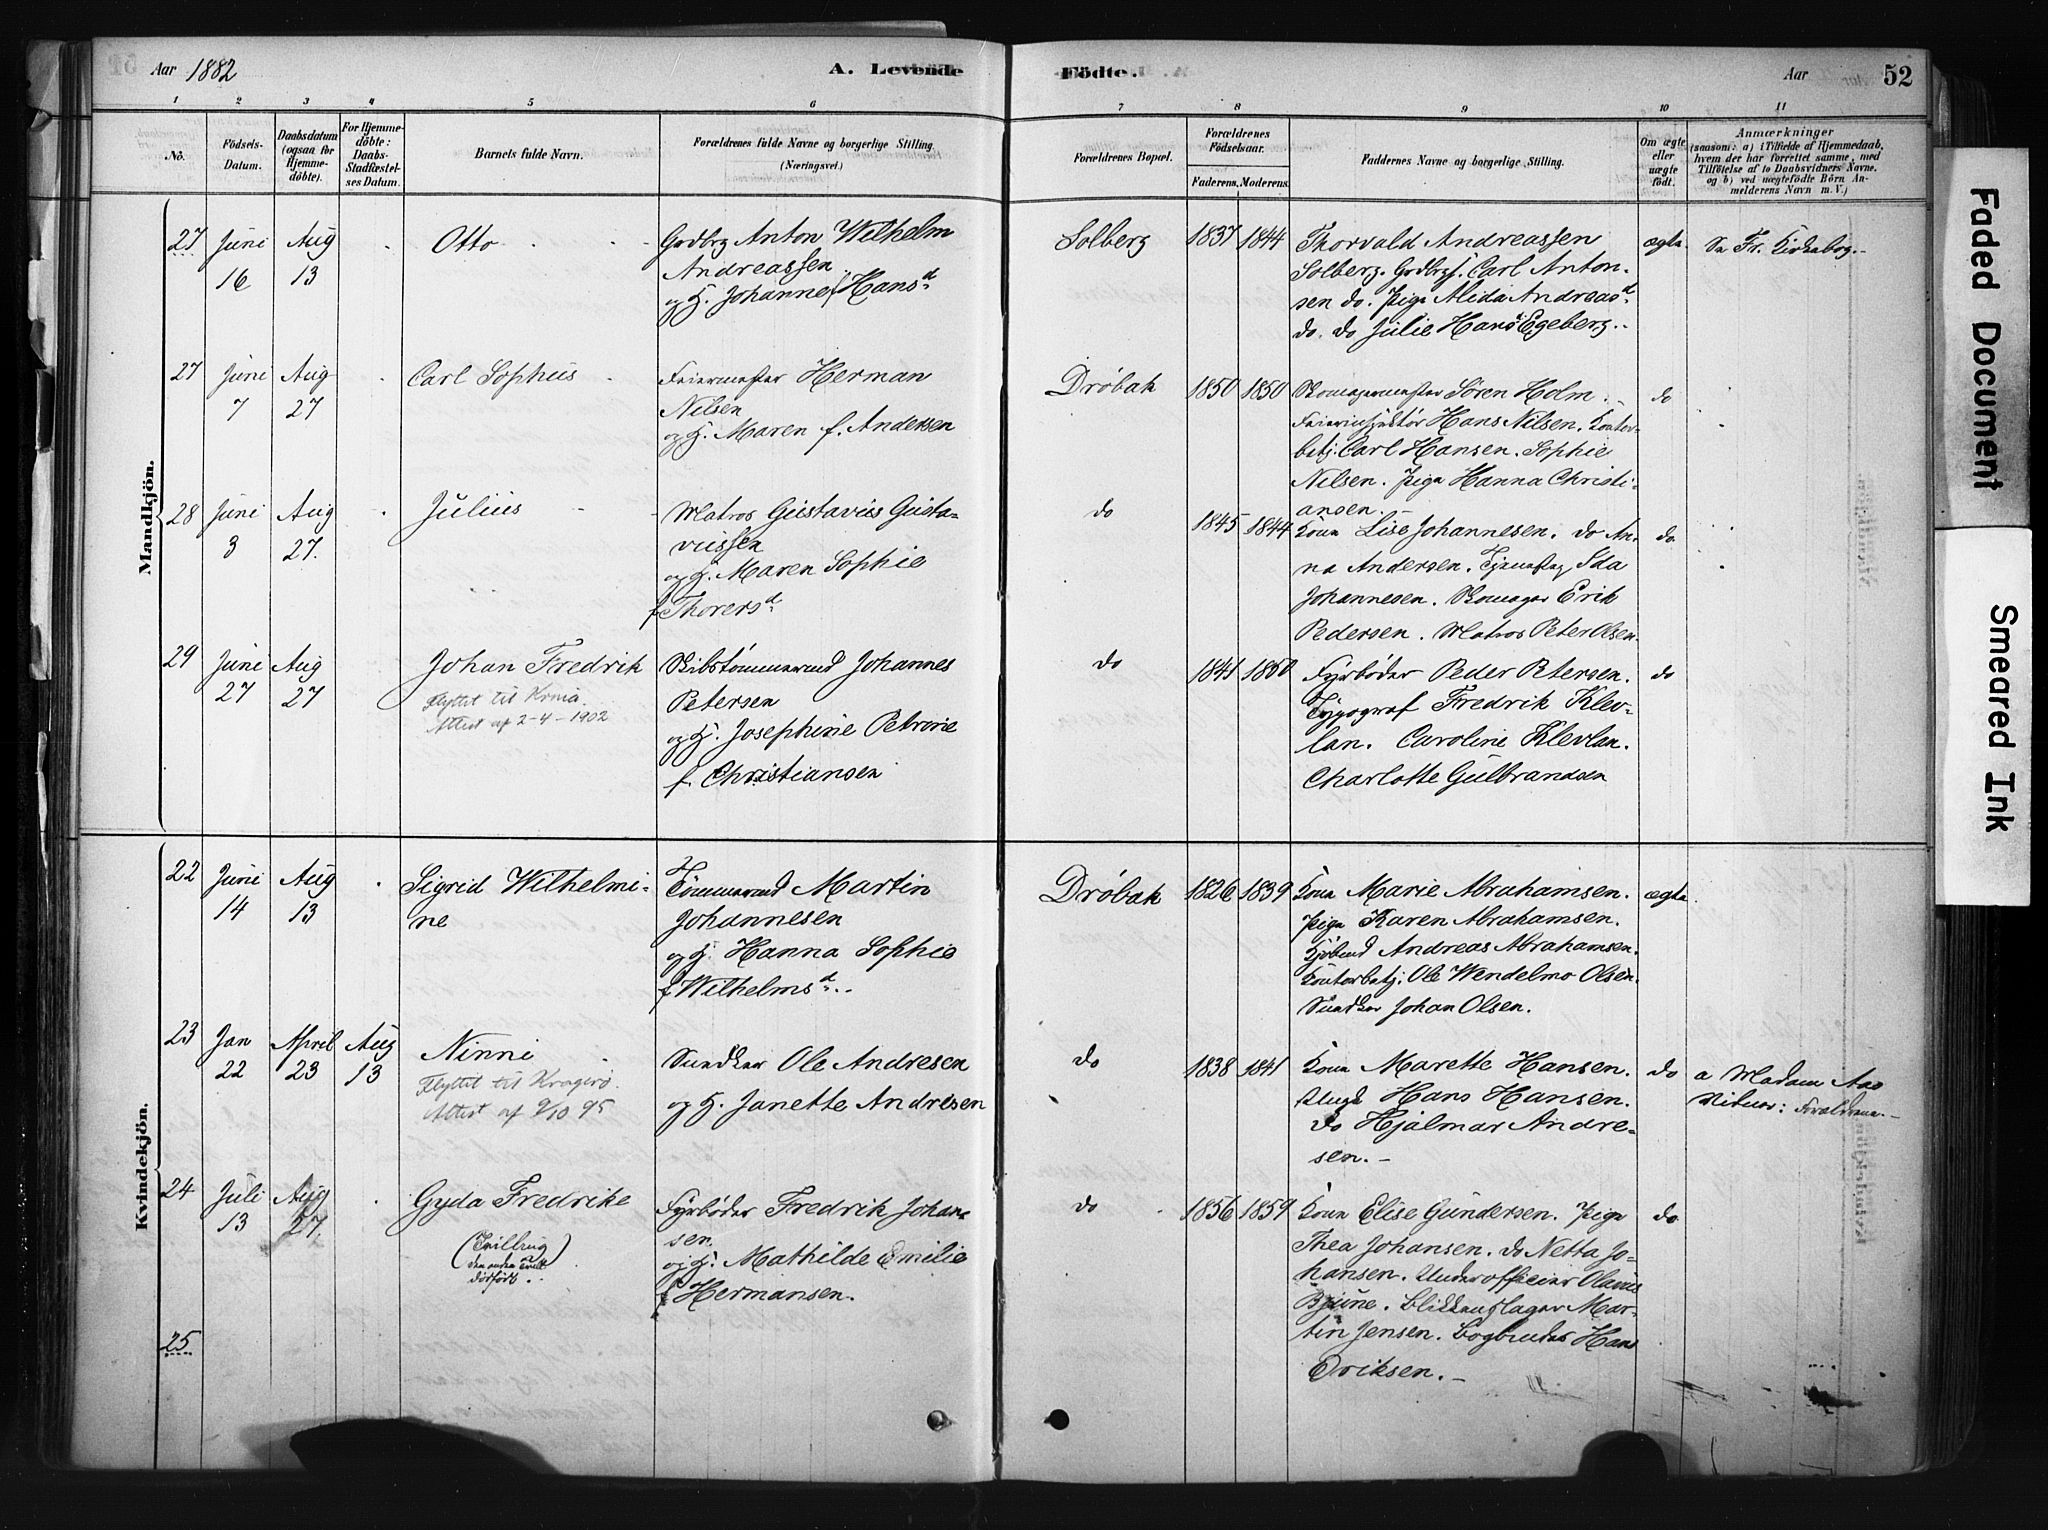 Aar 1882
A. Levende
Födte.
Aar
52
1 2 3 4 5 6 7 8 9 10 11
No.
Födsels-
Datum.
Daabsdatum
(ogsaa for
Hjemme-
döbte).
For Hjemme-
döbte:
Daabs-
Stadfæstel-
ses Datum.
Barnets fulde Navn.
Forældrenes fulde Navne og borgerlige Stilling.
(Næringsvei.)
Forældrenes Bopæl.
Forældrenes
Födselsaar.
Faderens. Moderens.
Faddernes Navne og borgerlige Stilling.
Om ægte
eller
uægte
födt.
Anmærkninger
(saasom: a) i Tilfælde af Hjemmedaab,
hvem der har forrettet samme, med
Tilföielse af to Daabsvidners Navne.
og b) ved uægtefödte Börn An-
melderens Navn m. V.)
Mandkjön.
27 Juni 16 Aug 13
Otto
Grdbrg Anton Wilhelm
Andreassen
og H. Johanne f Hansd
Solberg
1837 1844
Thorvald Andreassen
Solberg. Grdbrgs. Carl Anton-
sen do. Pige Alida Andreasd
do. do Julie Hans Egeberg..
ægte
Se Fr. Kirkebog.-
27 Juni 7 Aug 27
Carl Sophus
Feiermester Herman
Nilsen
og H. Maren f. Andersen
Dröbak
1850 1850
Skomagermester Sören Holm.
Feierinspektör Hans Nilsen. Kontor-
betj. Carl Hansen. Sophie
Nilsen. Pige Hanna Christi-
ansen.-
do
28 Juni 3 Aug 27.
Julius
Matros Gustavus Gusta-
vussen
og H. Maren Sophie
f Thorersd
do
1845 1844
Kone Lise Johannesen. do An-
na Andersen. Tjenestpg Ida
Johannesen. Skomager Erik
Pedersen. Matros Peter Olsen.
do
29 Juni 27 Aug 27
Johan Fredrik
Flyttet til Krnia.
Attest af 2-4-1902
Skibstömmermd Johannes
Petersen
og H. Josephine Petrine
f. Christiansen
do
1841 1850
Fyrböder Peder Petersen.
Typograf Fredrik Klev-
lan. Caroline Klevlan.
Charlotte Gulbrandsen
do
Kvindekjön.
22 Juni 14 Aug 13
Sigrid Wilhelmi-
ne
Tömmermd Martin
Johannesen
og H. Hanna Sophie
f Wilhelmsd..
Dröbak
1826 1839
Kone Marie Abrahamsen.
Pige Karen Abrahamsen.
Kjöbmd Andreas Abrahamsen.
Kontorbetj. Ole Wendelmo Olsen.
Snedker Johan Olsen.
ægte.
23 Jan 22 April 23 Aug 13
Ninni
Flyttet til Kragerö.
Attest af 9/10 95
Snedker Ole Andresen
og H. Janette Andresen
do
1838 1841
Kone Marette Hansen.
Ungk Hans Hansen.
do Hjalmar Andre-
sen.-
do
a Madam Aas
Vidner: Forældrene.-
24 Juli 13 Aug 27.
Gyda Fredrike
(Tvilling
den anden Tvill
dödfödt.)
Fyrböder Fredrik Johan-
sen.
og H. Mathilde Emilie
f Hermansen.
do
1856 1859
Kone Elise Gundersen. Pige
Thea Johansen. do Netta Jo-
hansen. Underofficier Olavus
Bjune. Blikkenslager Mar-
tin Jensen. Bogbinder Hans
Eriksen.-
do
25
Faded Document
Smeared Ink